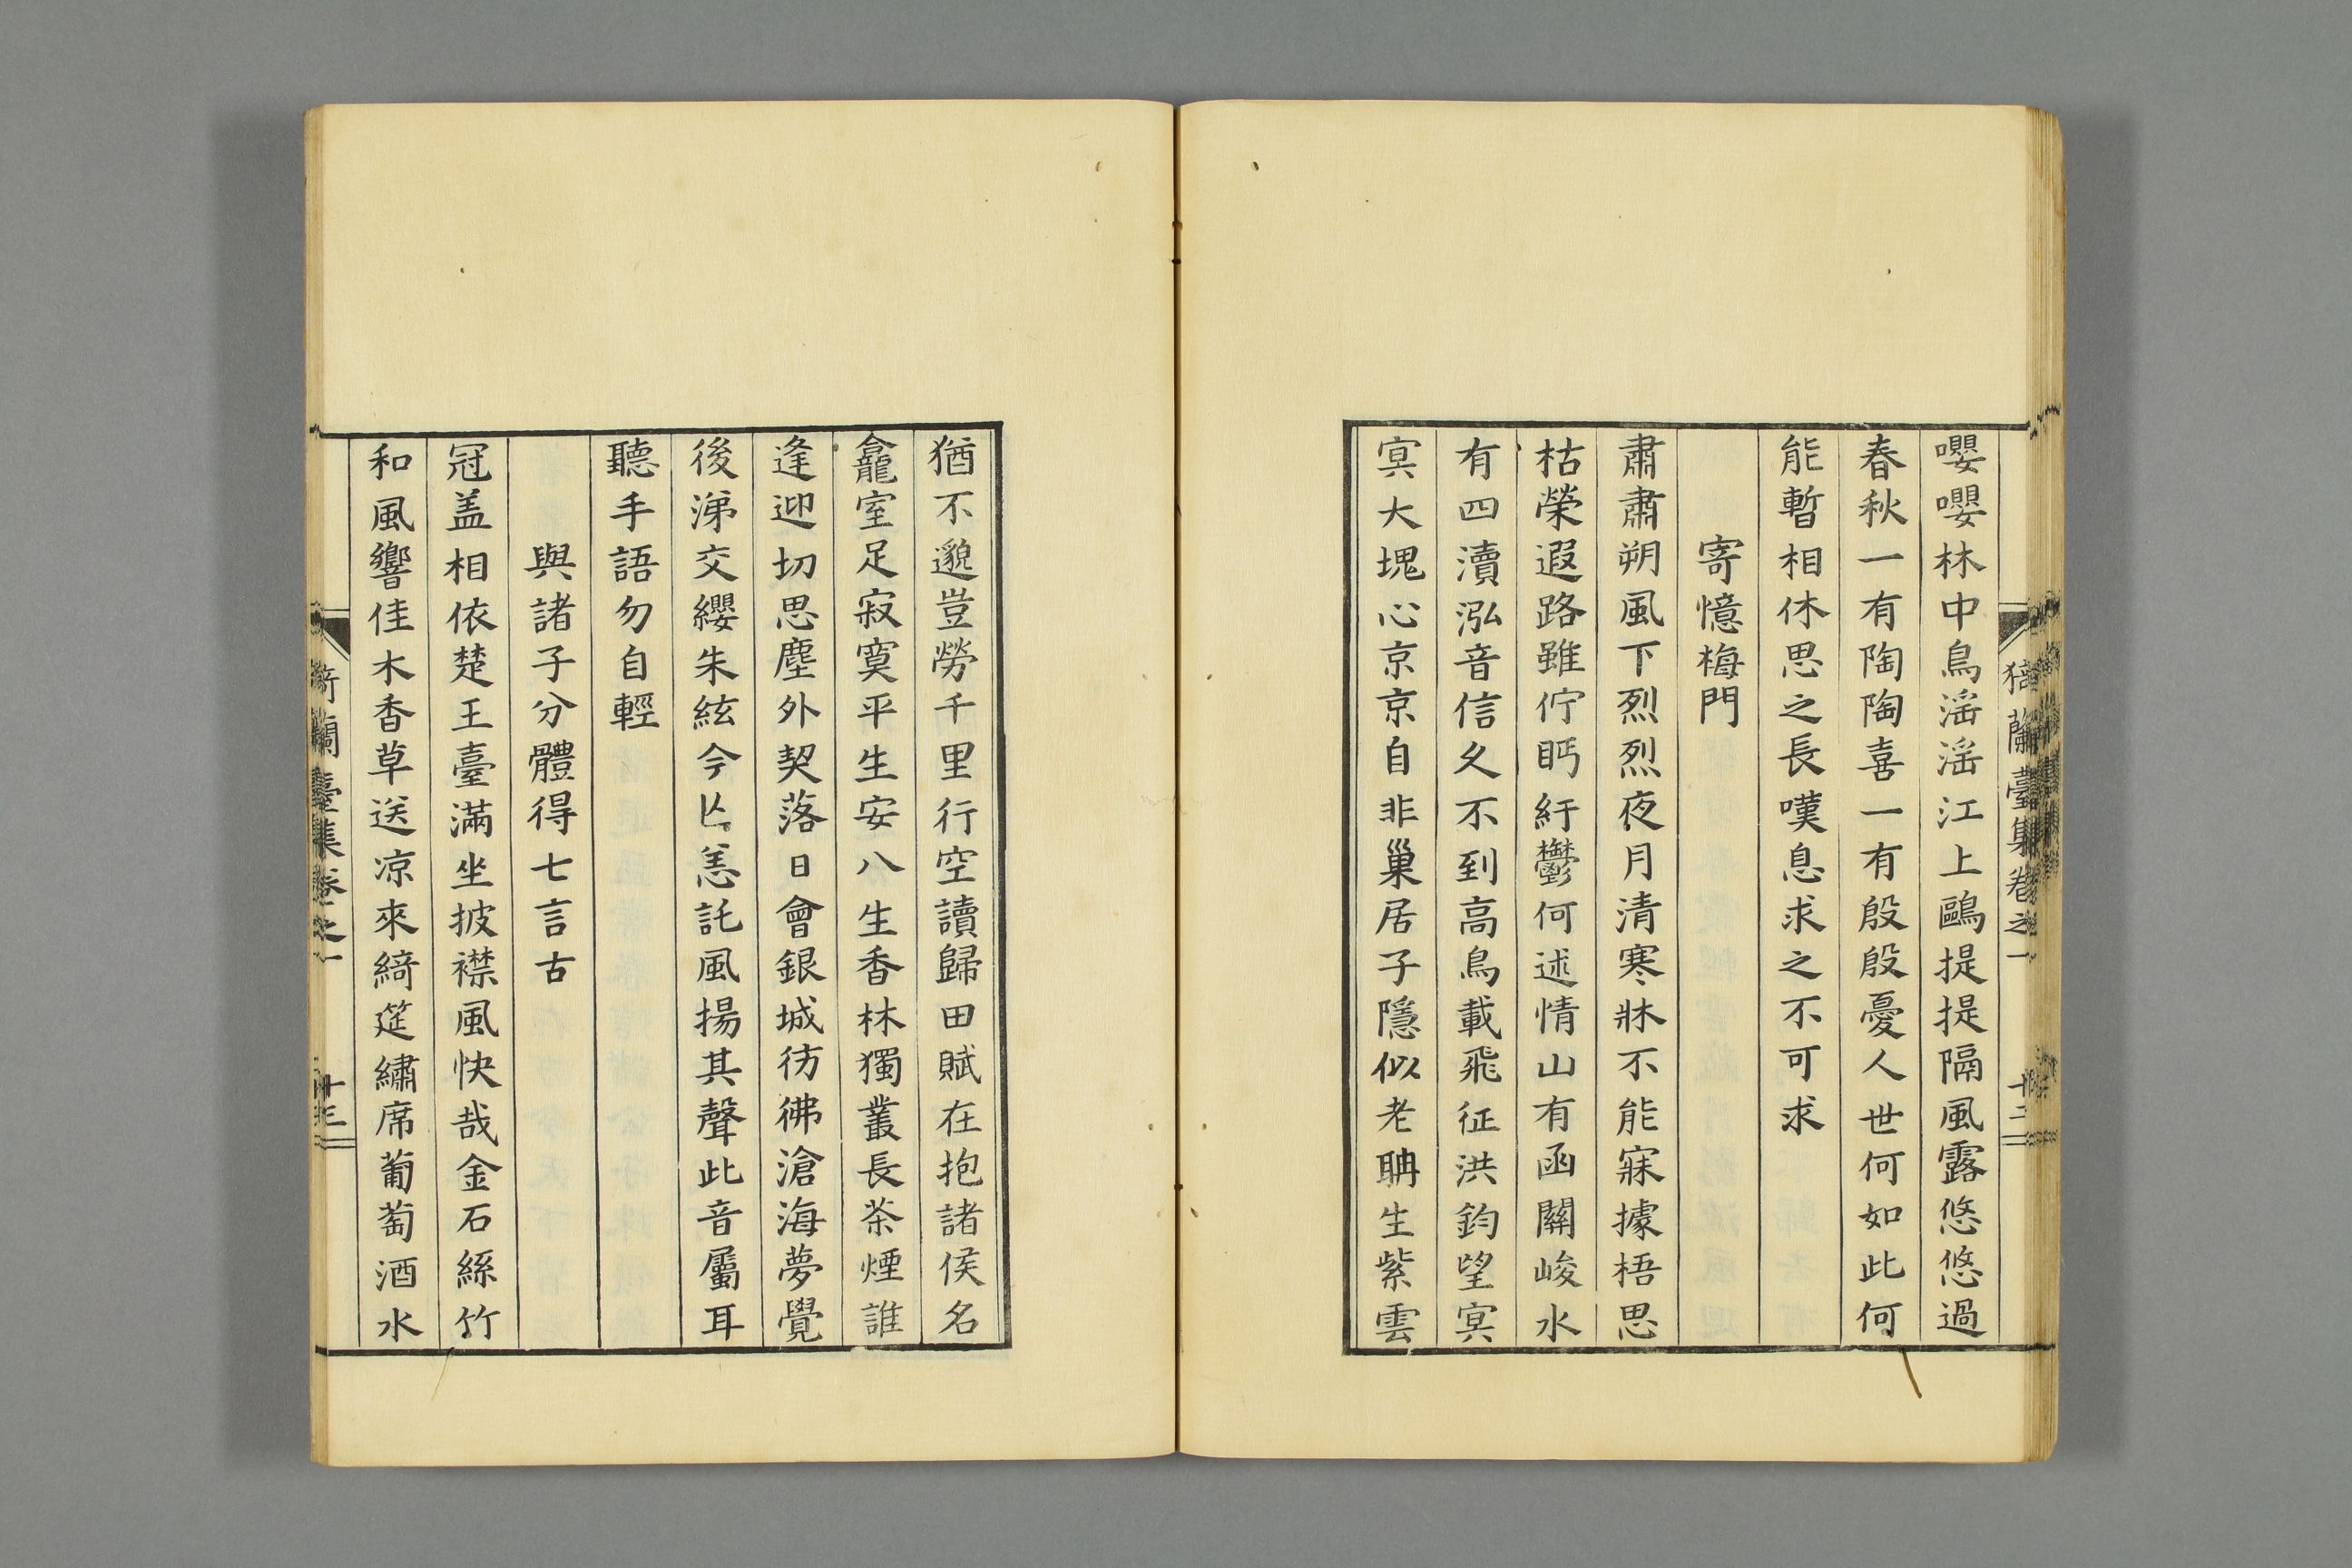 猗蘭臺集卷之一 十二
嚶嚶林中鳥滛滛江上鷗提提隔風露悠悠過
春秋一有陶陶喜一有殷殷憂人世何如此何
能暫相休思之長嘆息求之不可求
寄憶梅門
肅肅朔風下烈烈夜月清寒牀不能寐據梧思
枯榮遐路雖佇眄紆鬱何述情山有函關峻水
有四瀆泓音信久不到高鳥載飛征洪鈞望㝠
㝠大塊心京京自非巢居子隱似老聃生紫雲
猶不邈豈勞千里行空讀歸田賦在抱諸侯名
龕室足寂寞平生安八生香林獨叢長茶煙誰
逢迎切思塵外契落日會銀城彷彿滄海夢覺
後涕交纓朱絃今亡恙託風揚其聲此音屬耳
聽手語勿自輕
與諸子分體得七言古
冠盖相依楚王臺滿坐披襟風快哉金石絲竹
和風響佳木香草送凉來綺筵繡席葡萄酒水
猗蘭臺集卷之一 十三